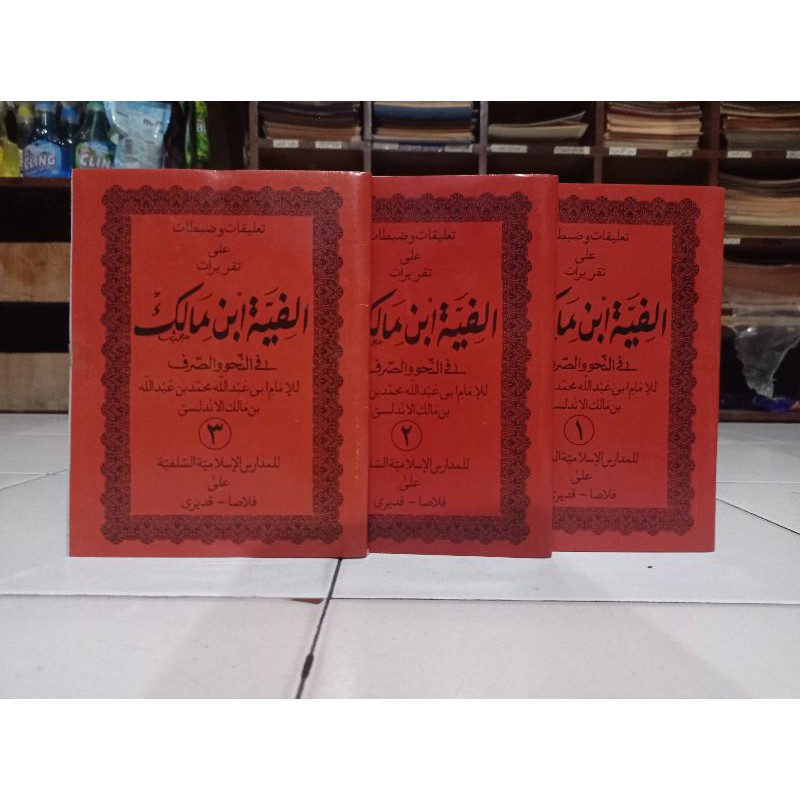 تعليقات وضبطات
على
تقريرات
الفيّة ابن مالك
فى النّحو والصّرف
للإمام ابى عبدالله محمّد بن عبدالله
بن مالك الاندلسى
٣
للمدارس الإسلاميّة السّلفيّة
على
فلاصا - قديرى
تعليقات وضبطات
على
تقريرات
الفيّة ابن مالك
فى النّحو والصّرف
للإمام ابى عبدالله محمّد بن
بن مالك الاندلسى
٢
للمدارس الإسلاميّة
على
فلاصا - قديرى
تعليقات وضبطات
على
تقريرات
الفيّة ابن
فى النّحو والصّرف
للإمام ابى عبدالله محمّد
بن مالك الاندلسى
١
للمدارس الإسلاميّة
على
فلاصا - قديرى
CLING
CLIN